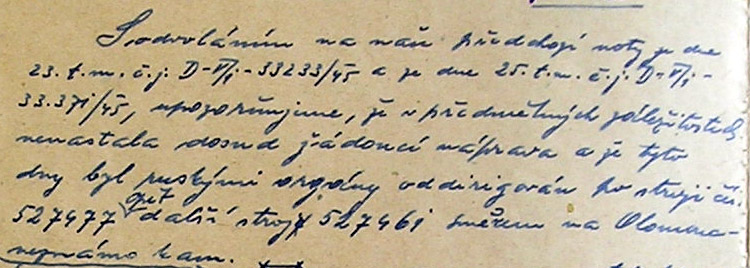 S odvoláním na naše předchozí noty ze dne
23. t.m. č.j. D-VI/1-33233/45 a ze dne 25. t.m. č.j. D-VI/1-
33.371/45, upozorňujeme, že v předmětných záležitostech
nenastala dosud žádoucí náprava a že tyto
dny byl ruskými orgány oddirigován po stroji čís.
527477 opět další stroj 527461 směrem na Olomouc-
neznámo kam.